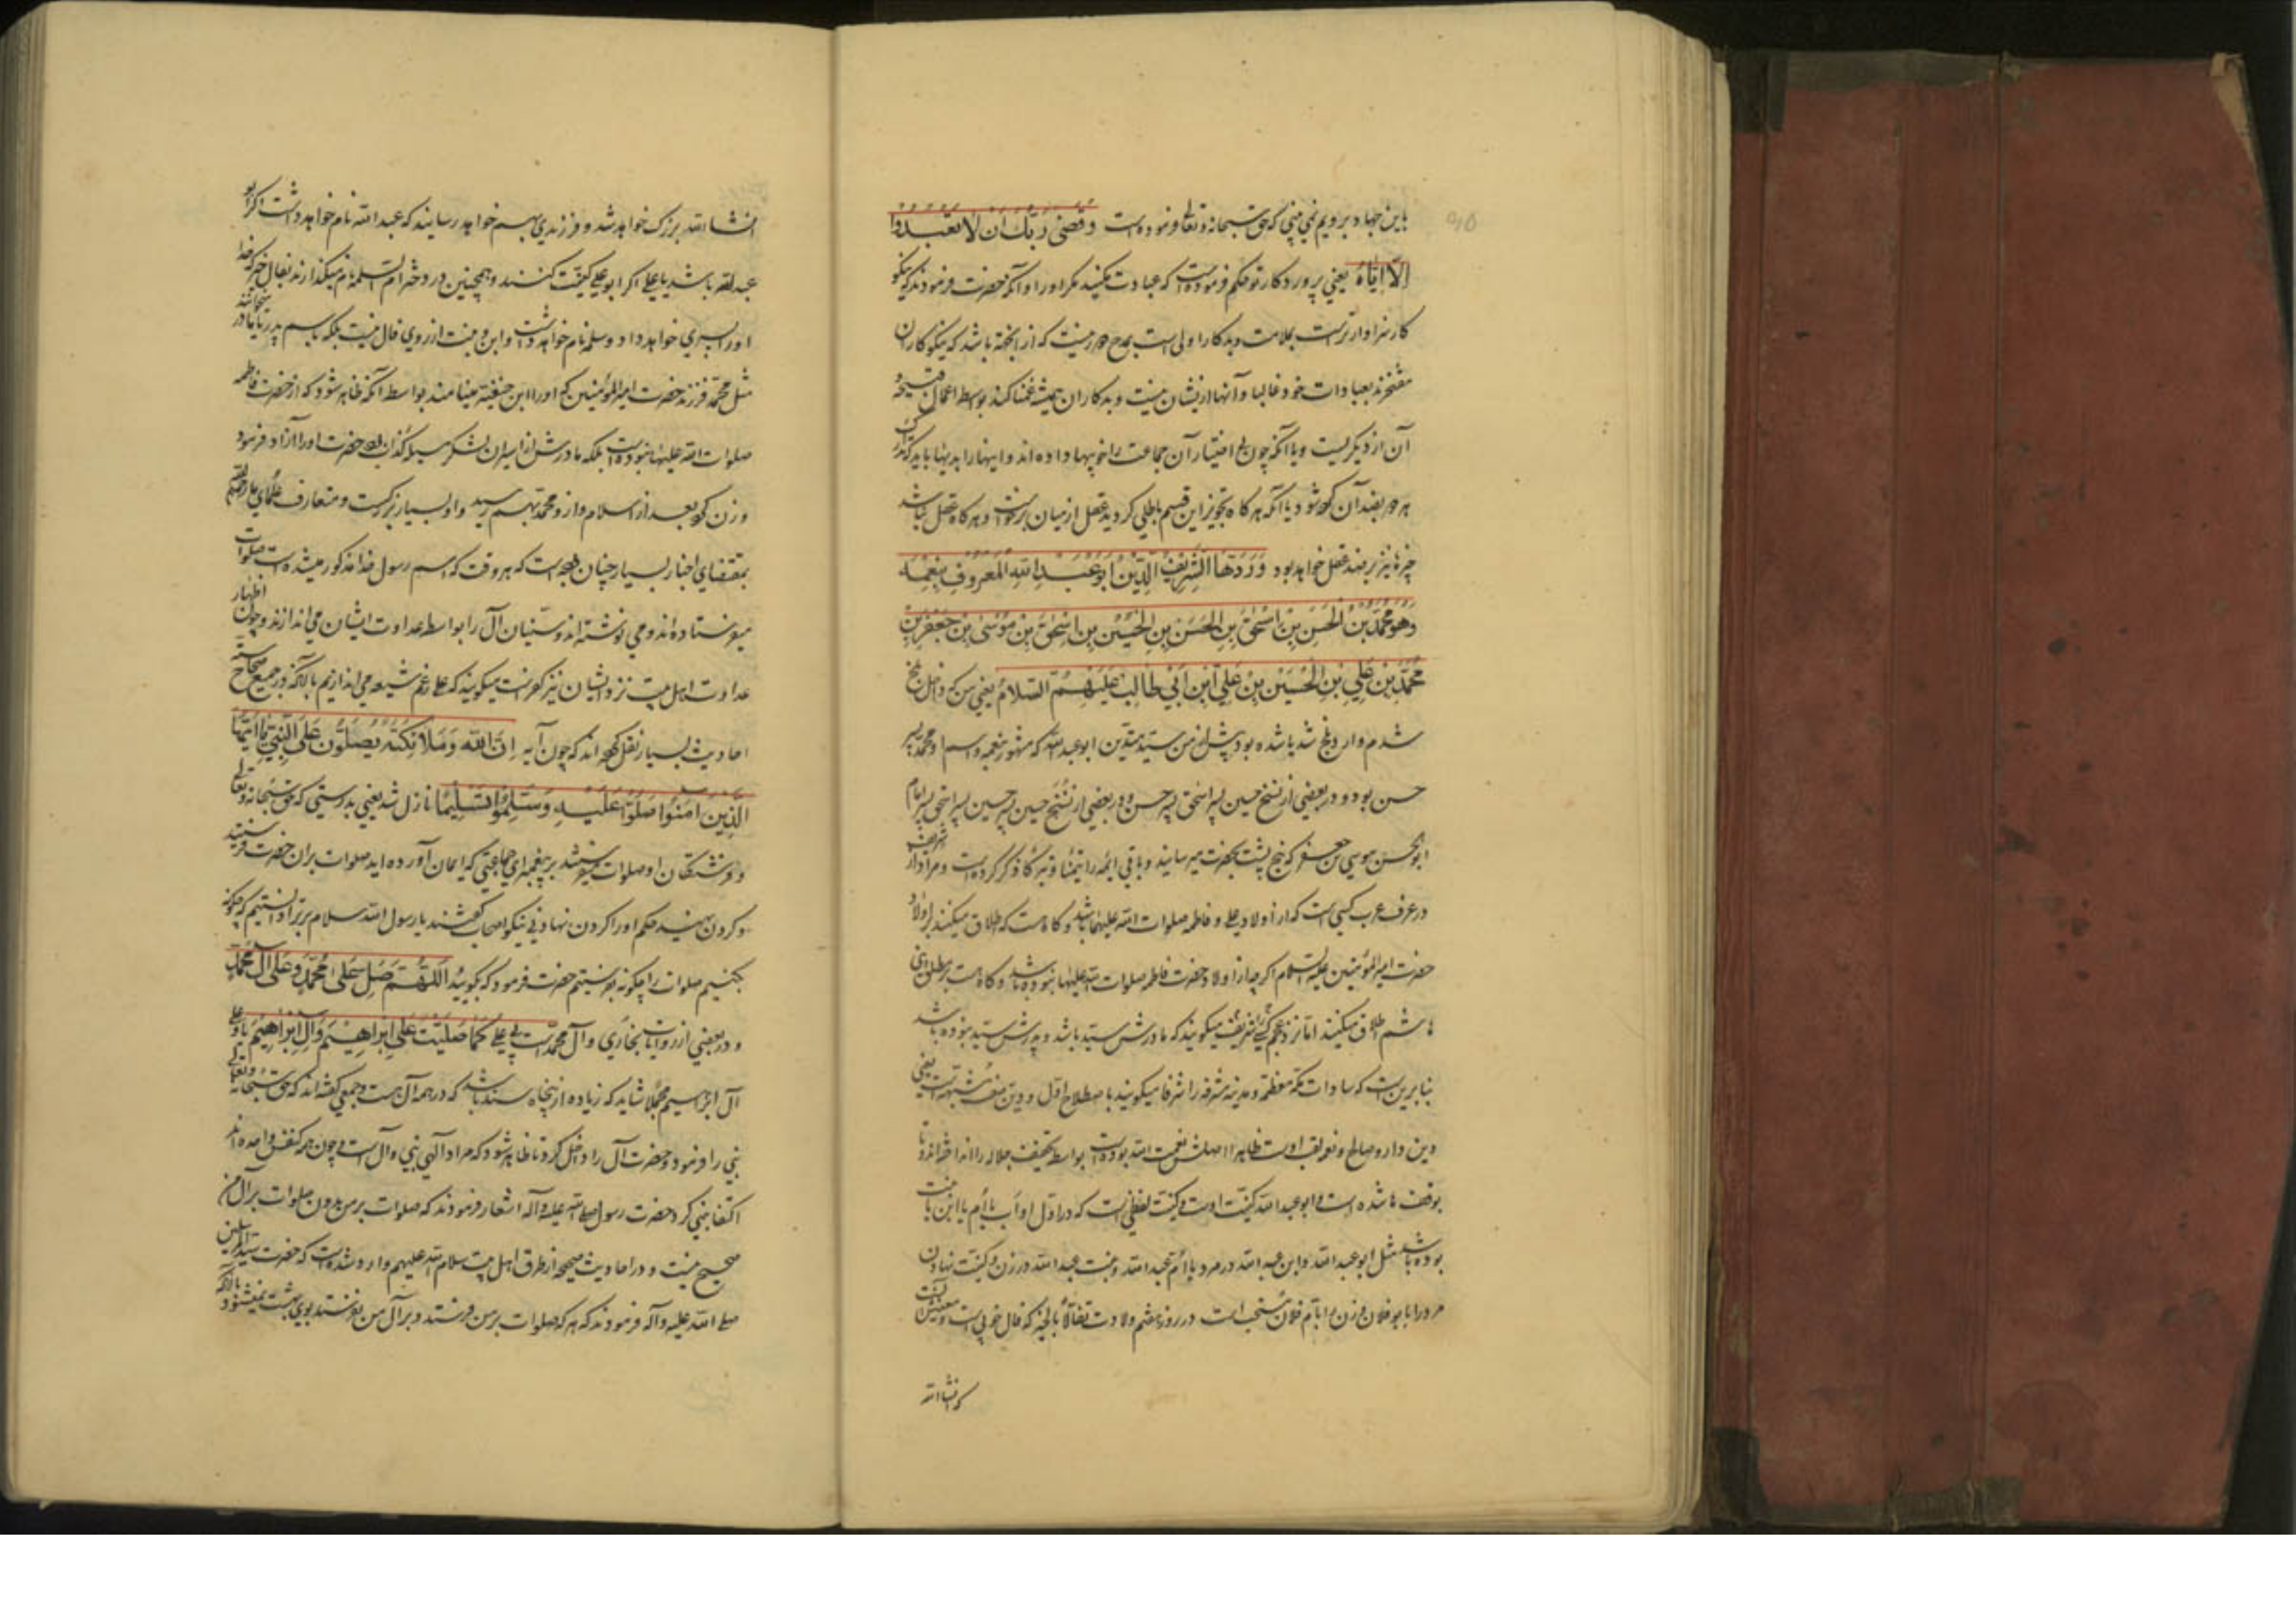 باین جهاد برویم نمی بینی که حق سبحانه و تعالی فرموده است وَقَضىٰ رَبُّكَ أَنْ لَا تَعْبُدُوا
إِلَّا إِيَّاهُ یعنی پروردکار تو حکم فرموده است که عبادت مکنید مکر او را و آنکه حضرت فرمودند که نیکو
کار سزاوارترست بملامت و بدکار اولی است بمدح باشد که نیکوکاران
مفتخرند بعبادات خود غالبا و آنها از ایشان نیست و بدکاران همیشه بواسطه اعمال قبیحه
آن از دیکریست و یا آنکه چون بی اختیار آن جماعت را خوبیها داده اند و اینها را بدیها باید که
هر یا آنکه هر کاه تجویز این قسم باطلی کردید عقل از میان برخاست و هر کاه عقل نباشد
چیزها نیز بر ضد عقل خواهد بود وَرَدَهَا الشَّرِيفُ الدَّيِّنُ أَبُو عَبْدِ اللهِ الْمَعْرُوفِ بِنِعْمَه
وَهُوَ مُحَمَّدُ بْنُ الْحَسَنِ بْنِ إِسْحٰقَ بْنِ الْحَسَنِ بْنِ الْحُسَيْنِ بْنِ إِسْحٰقَ بْنِ مُوسَى بْنِ جَعْفَرِ بْنِ
مُحَمَّدِ بْنِ عَلِيِّ بْنِ الْحُسَيْنِ بْنِ عَلِيِّ ابْنِ أَبِي طَالِبٍ عَلَيْهِمُ السَّلَامُ یعنی من که داخل بلخ
شدم وارد بلخ شد یا شده بود پیش از من سید متدین ابو عبد الله که مشهور بنعمه و اسم او محمد پسر
حسن بود و در بعضی از نسخ حسین پسر اسحق پسر حسن و در بعضی از نسخ حسین پسر حسین پسر اسحق پسر امام
ابو الحسن موسی بن جعفر که پنج پشت بحضرت میرساند و باقی ائمه را تیمنا و تبرکا ذکر کرده است و مراد از شریف
در عرف عرب کسی است که از اولاد علی و فاطمه صلوات الله علیهما باشد و کاه هست که اطلاق میکنند بر اولاد
حضرت امیر المؤمنین علیه السلام اکر چه از اولاد حضرت فاطمه صلوات الله علیها نبوده باشد و کاه هست بر مطلق بنی
هاشم اطلاق میکنند اما نزد عجم کسی را شریف میکویند که مادرش سید باشد و پدرش سید نبوده باشد
بنابرین است که سادات مکه معظمه و مدینه مشرفه را شرفا میکویند باصطلاح اول و دین صفت مشبهه است یعنی
دین دار و صالح و نعمه لقب اوست ظاهرا اصلش نعمت الله بوده است بواسطه تخفیف جلاله را انداخته اند و تا
بوقف ها شده است و ابو عبد الله کنیت اوست و کنیت لفظی است که در اول او اَب یا اُم یا ابن یا بنت
بوده باشد مثل ابو عبد الله و ابن عبد الله در مرد یا ام عبد الله و بنت عبد الله در زن و کنیت نهادن
مرد را بابو فلان و زن را بام فلان مستحب است در روز هفتم ولادت تفألا بالخیر که فال خوبی است و معنیش آنست
که انشا الله
انشا الله بزرک خواهد شد و فرزندی بهم خواهد رسانید که عبد الله نام خواهد داشت اکر ابو
عبد الله باشد یا علی اکر ابو علی کنیت کنند و همچنین در دختر ام سلمه نام میکذارند تفأل خیر که خدا
او را پسری خواهد داد و سلمه نام خواهد داشت و ابن و بنت از روی فال نیست بلکه باسم پدر یا مادر
مثل محمد فرزند حضرت امیر المؤمنین که او را ابن حنفیه مینامند بواسطه آنکه ظاهر شود که از حضرت فاطمه
صلوات الله علیها نبوده است بلکه مادرش از اسیران لشکر مسیلمه کذاب بود حضرت او را آزاد فرمود
و زن کرد بعد از اسلام و از و محمد بهم رسید و او بسیار بزرکست و متعارف علمای ما رضی الله عنهم
بمقتضای اخبار بسیار چنان بوده است که هر وقت که اسم رسول خدا مذکور میشده است صلوات
میفرستاده اند و می نوشته اند و سنیان آل را بواسطه عداوت ایشان می اندازند و چون اظهار
عداوت اهل بیت نزد ایشان نیز کفرست میکویند که علی رغم شیعه می اندازیم با آنکه در جمیع صحاح سته
احادیث بسیار نقل کرده اند که چون آیه إِنَّ اللهَ وَمَلَائِكَتَهُ يُصَلُّونَ عَلَى النَّبِيِّ يَا أَيُّهَا
الَّذِينَ آمَنُوا صَلُّوا عَلَيْهِ وَسَلِّمُوا تَسْلِيمًا نازل شد یعنی بدرستی که حق سبحانه و تعالی
و فرشتکان او صلوات میفرستند بر پیغمبر ای جماعتی که ایمان آورده اید صلوات بران حضرت فرستید
و کردن نهید حکم او را کردن نهادنی نیکو اصحاب کفتند یا رسول الله سلام بر ترا دانستیم که چکونه
بکنیم صلوات را چکونه بفرستیم حضرت فرمود که بکویید اَللّٰهُمَّ صَلِّ عَلَى مُحَمَّدٍ وَعَلَى آلِ مُحَمَّدٍ
و در بعضی از روایات بخاری و آل محمد است بی علی كَمَا صَلَّيْتَ عَلَى إِبْرَاهِيمَ وَآلِ إِبْرَاهِيمَ یا و علی
آل ابراهیم مجملا شاید که زیاده از پنجاه سند باشد که در همه آل هست و جمعی کفته اند که حق سبحانه و تعالی
نبی را فرمود و حضرت آل را داخل کرد تا ظاهر شود که مراد الهی نبی و آل است و چون همه کنفس واحده اند
اکتفا بنبی کرد و حضرت رسول صلی الله علیه و آله اشعار فرمودند که صلوات بر من بدون صلوات بر آل من
صحیح نیست و در احادیث صحیحه از طرق اهل بیت سلام الله علیهم وارد شده است که حضرت سید المرسلین
صلی الله علیه و آله فرمودند که هر که صلوات بر من فرستد و بر آل من نفرستد بوی بهشت نمیشنود با آنکه